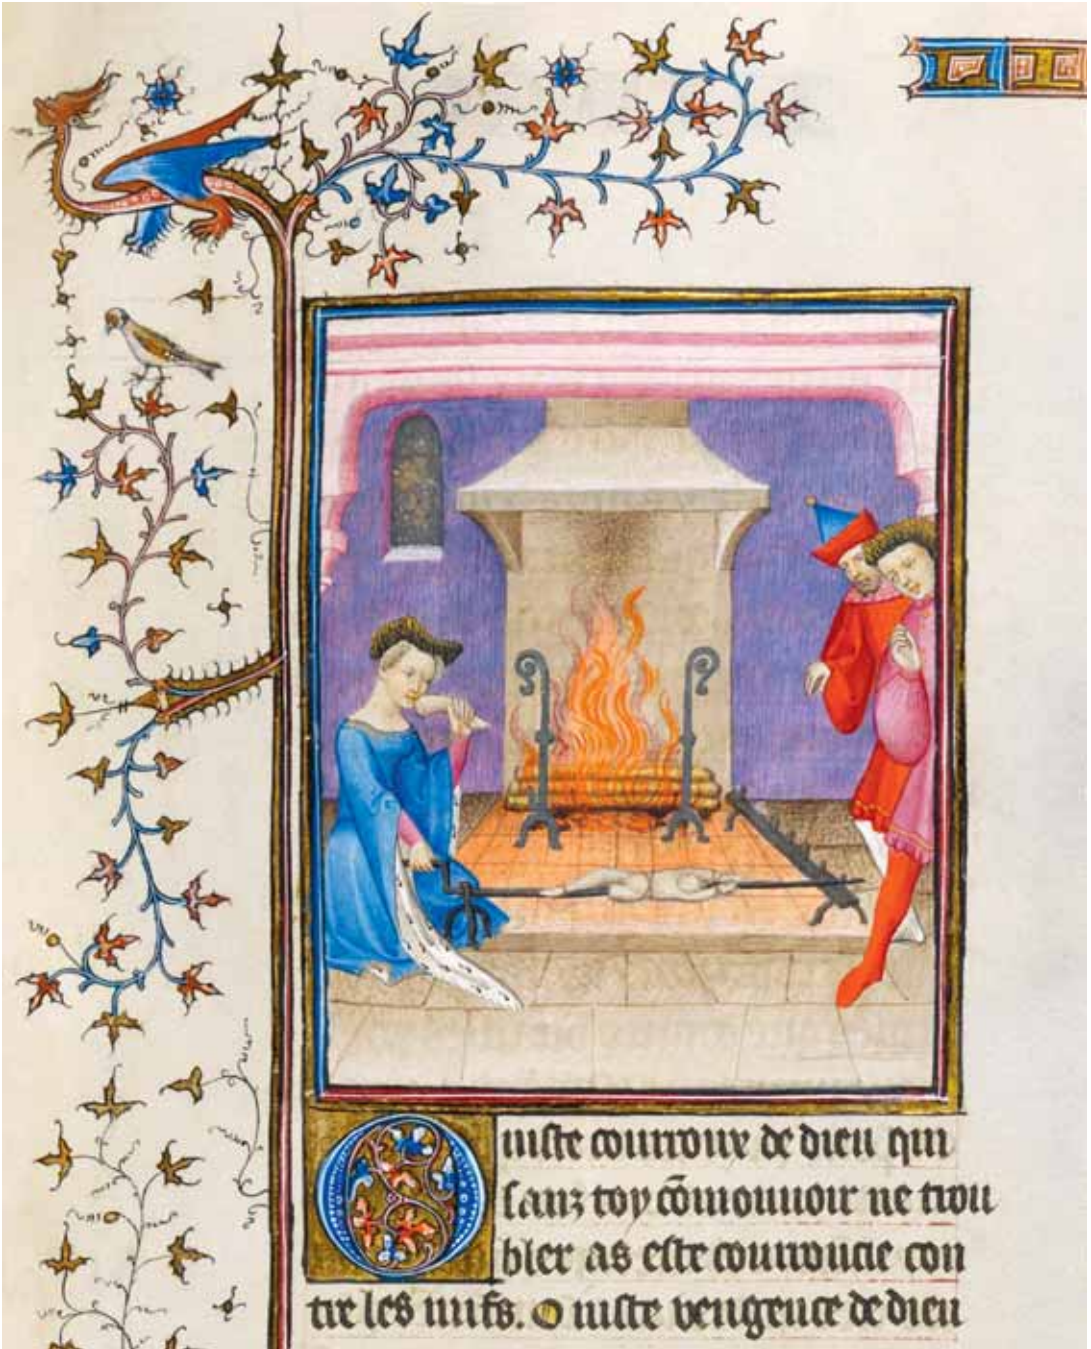 O iuste courroux de dieu qui
sanz toy cōmouuoir ne trou
bler as este courroucie con
tre les iuifs. O iuste vengence de dieu